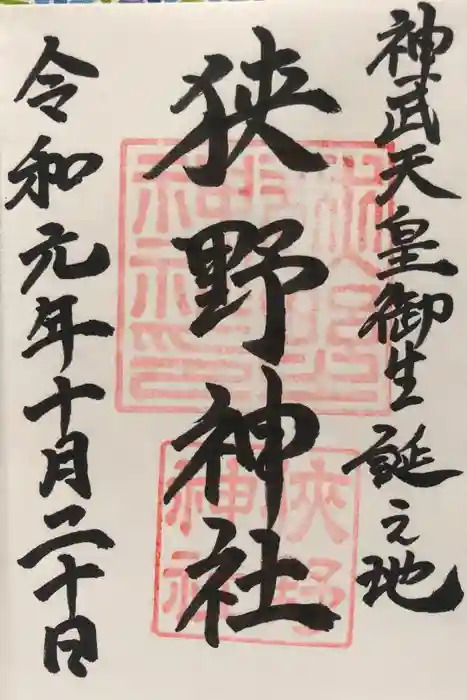 神武天皇御生誕之地
狹野神社
令和元年十月二十日
狹野
神社